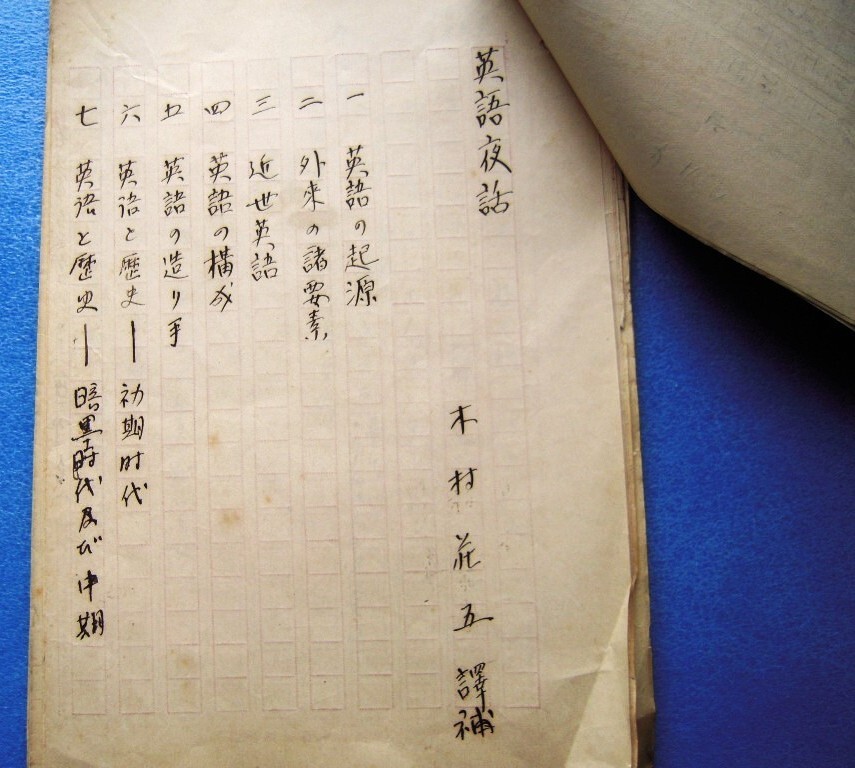 英語夜話
木村荘五譯補
一 英語の起源
二 外來の諸要素
三 近世英語
四 英語の構成
五 英語の造り手
六 英语と歴史—初期时代
七 英语と歴史—暗黒时代及び中期